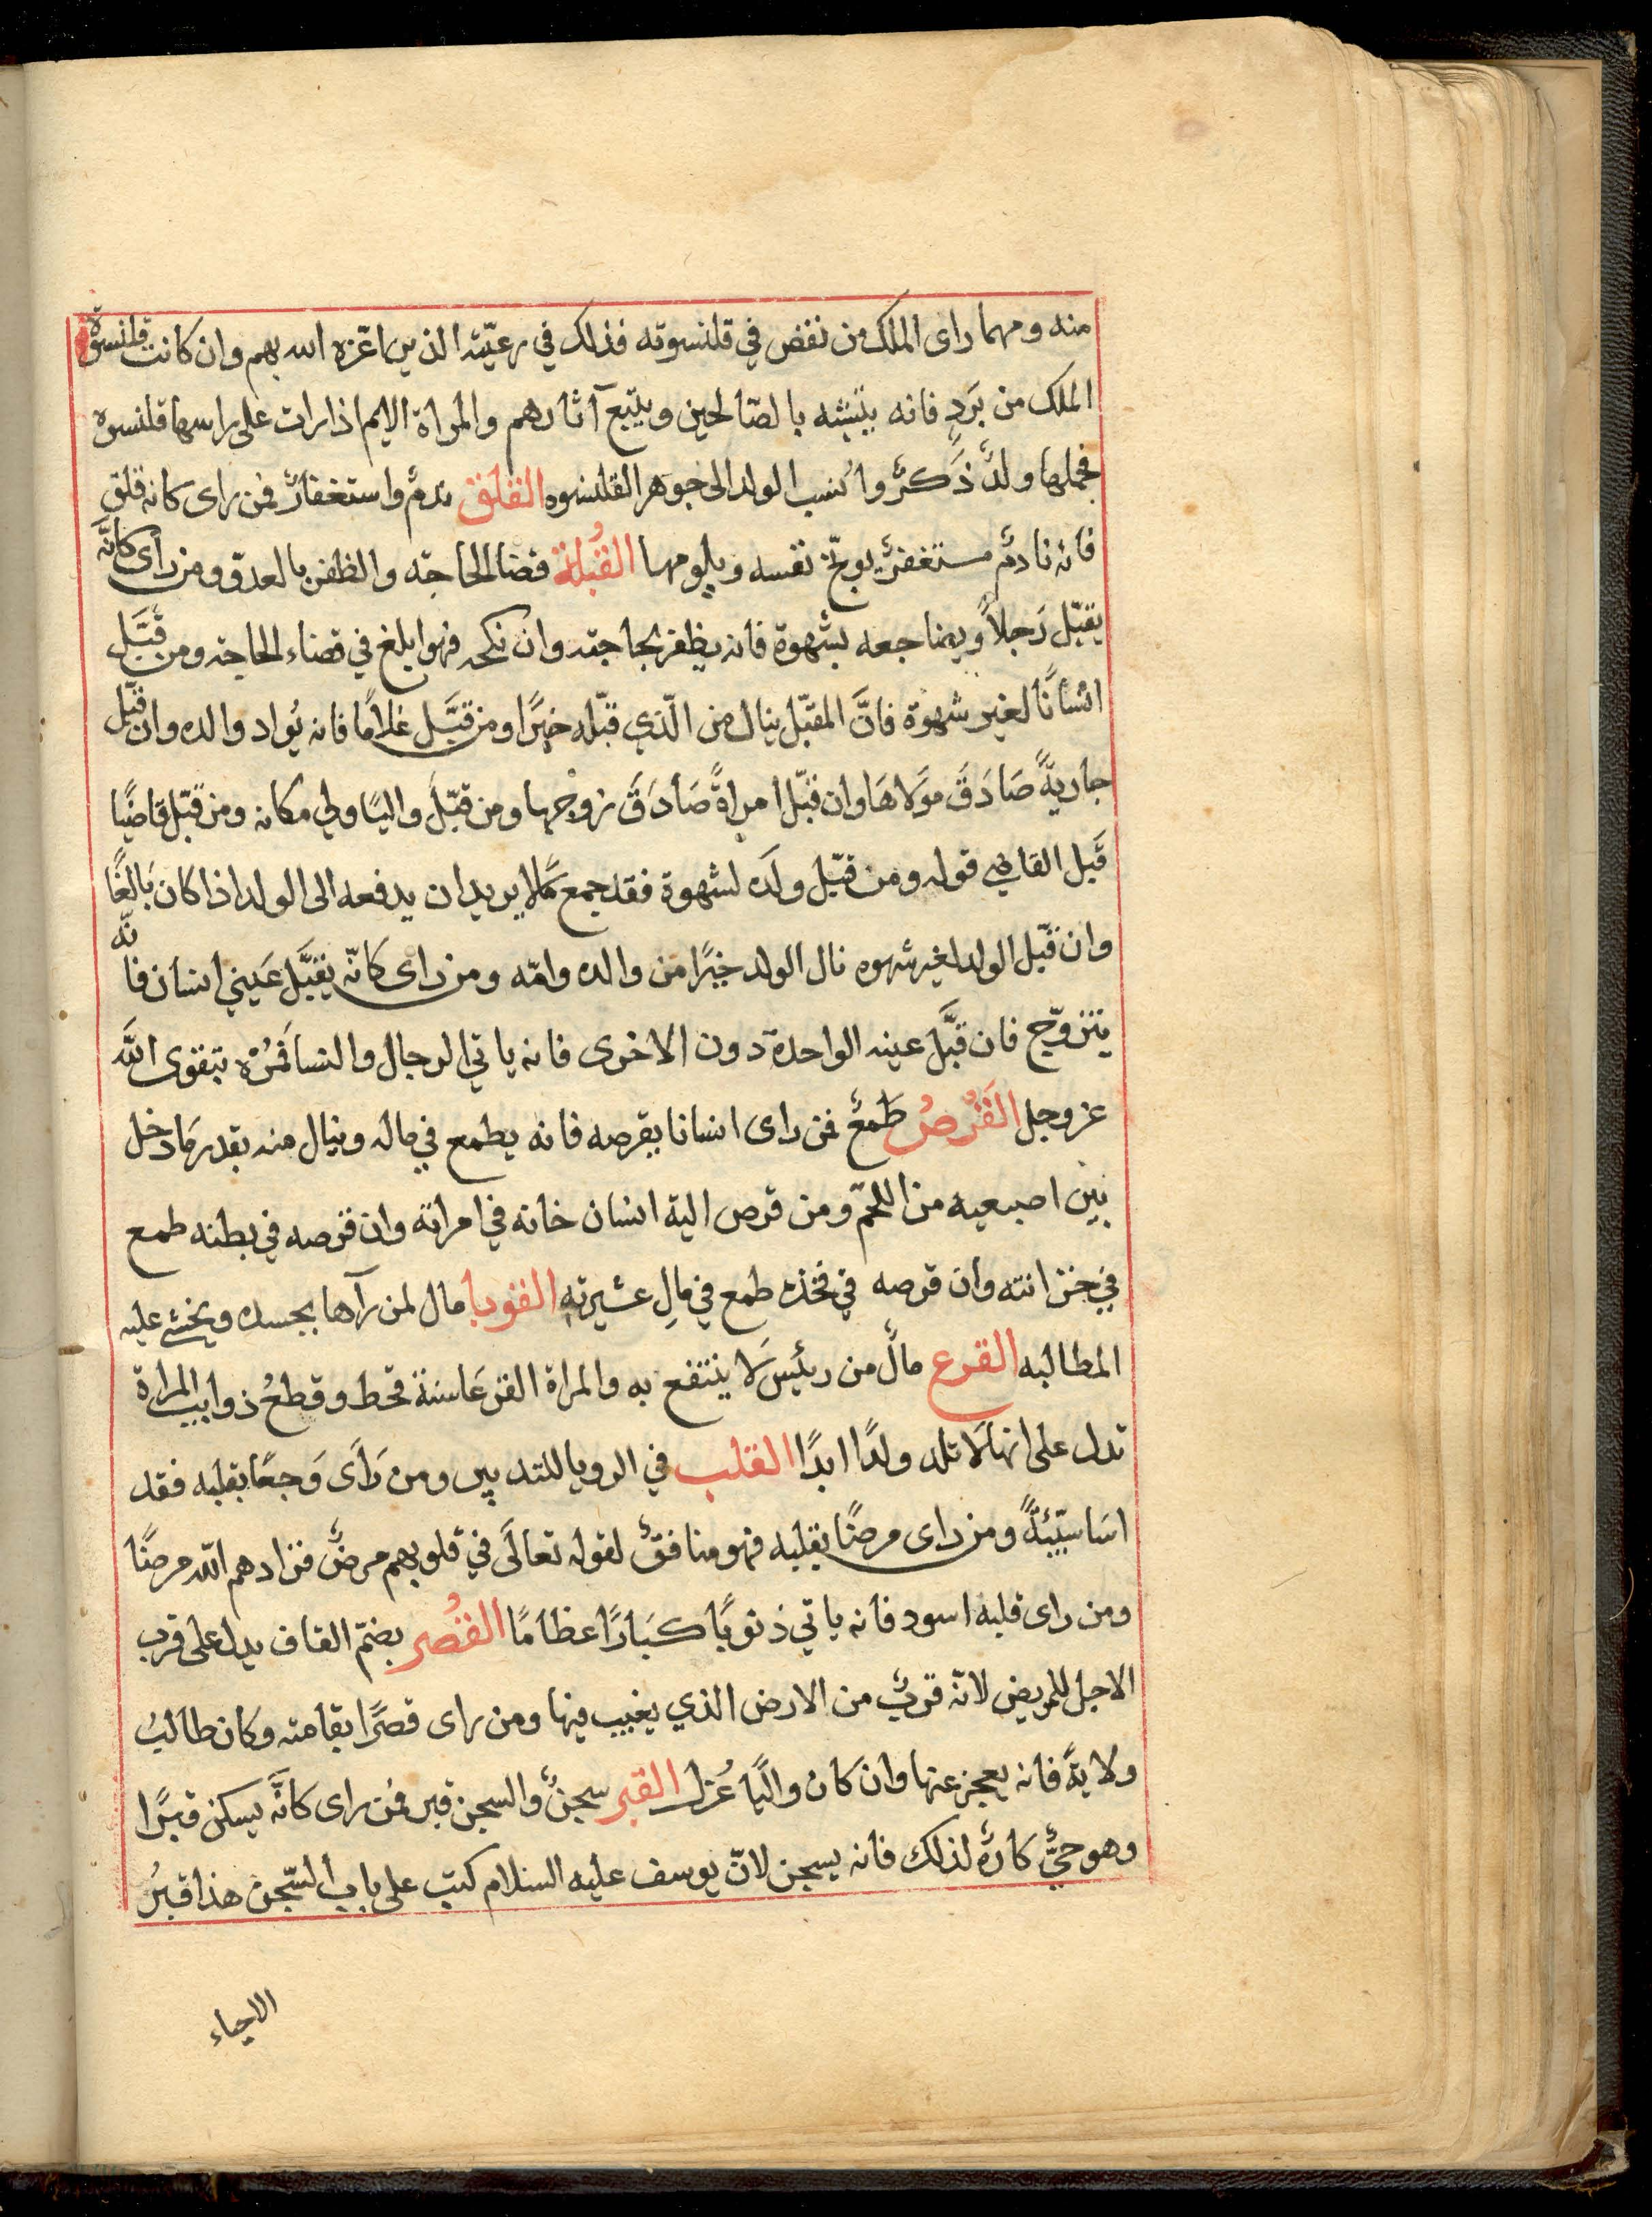 منه ومهما راى الملك من نقض في قلنسوته فذلك في رعيّته الذين اعّزه الله بهم وان كانت قلنسوة
الملك من بَردٍ فانه يتشبّه بالصّالحين ويتّبع آثارهم والمراة الايم اذا رات على راسها قلنسوه
فحملها ولدٌ ذَكرٌ وانسب الولد الى جوهر القلنسوه القلق ندمٌ واستغفارٌ فمن راى كانه قلق
فانه نادمٌ مستغفرٌ يوبخّ نفسه ويلومها القُبلة قضا الحاجته والظفر بالعدوّ ومن رأى كانَّه
يقبّل رَجلاً ويضاجعه بشهوة فانه يظفر بحاجته وان نكحه فهو ابلغ في قضاء الحاجة ومن قَبَّل
انسانًا لغير شهوة فانَّ المقبّل ينال من الّذي قبّله خيرًا ومن قبَّل غلامًا فانه يُواد والده وان قبّل
جاريةً صَادَقَ مَولاهَا وان قبّل امراةً صَادَقَ زوجها ومن قبّل واليًا ولي مكانه ومن قبّل قاضيًا
قَبل القاضي قوله ومن قبّل ولَده لشهوة فقد جمع مَالا يريد ان يدفعه الى الولد اذا كان بَالغًا
وان قبّل الولد لغير شهوه نال الولد خيرًا من والده وامّه ومن راى كانّه يقبَّل عَيني انسان فانّه
يتزوّج فان قبَّل عينه الواحدة دون الاخرى فانه ياتي الرجال والنسا فَمُرْه بتقوى اللَّه
عز وجل القَرْصُ طَمعٌ فمن راى انسانا يقرصه فانه يطمع في ماله وينال منه بقدر مَا دخل
بين اصبعيه من اللحّم ومن قرص الية انسان خانه في امراته وان قرصه في بطنه طمع
في خزانته وان قرصه في فخذه طمع في مالِ عشيرته القوبا مال لمن رآها بجسده ويخشى عليه
المطالبه القرع مالٌ من رئيس لَا ينتفع به والمراة القرعَا سنة قحط وقطعُ ذوايب المراة
تدل على انها لَا تلد ولدًا ابدًا القلب في الرويا للتدبير ومن رَأى وَجعًا بقلبه فقد
اسَا سيّئةً ومن راى مرضًا بقلبه فهو منافقٌ لقوله تعالَى في قلوبهم مرضٌ فزادهم اللّه مرضًا
ومن راى قلبه اسود فانه ياتي ذنوبًا كبَارًا عظامًا القُصر بضمّ القاف يدل على قرب
الاجل للمريض لانّه قربٌ من الارض الذي يغيب فيها ومن راى قصرًا بقامته وكان طالبُ
ولايةً فانه يعجز عنها وان كان واليًا عُزل القبر سجنٌ والسجن قبر فمن راى كانَّه يسكن قبرًا
وهو حيٌّ كارهٌ لذلك فانه يسجن لانّ يوسف عليه السلام كتب على باب السّجن هذا قبرُ
الاحياء